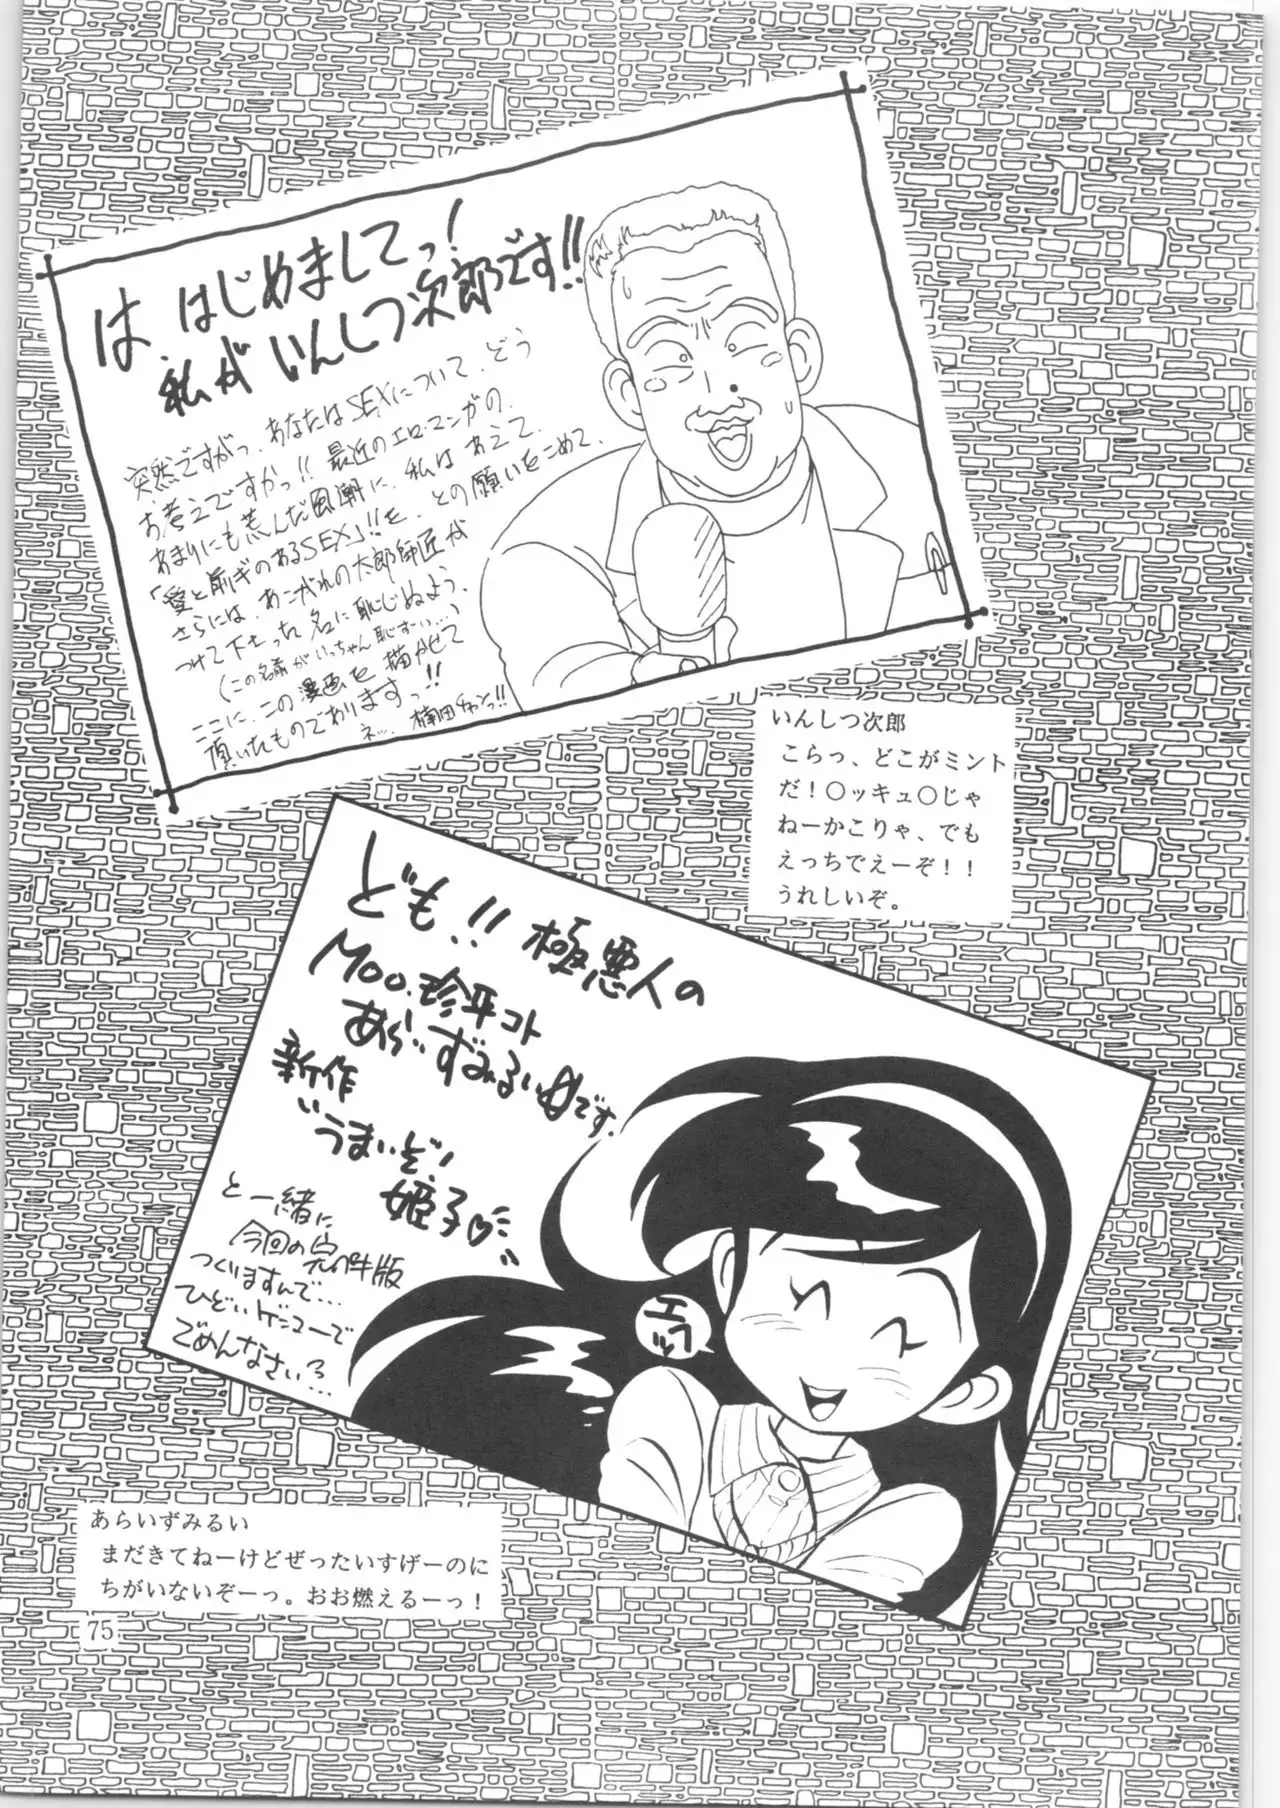 は、はじめましてっ！
私がいんしつ次郎です!!
突然ですがっ、あなたはSEXについて、どう
お考えですかっ!! 最近のエロ・マンガの、
あまりにも荒んだ風潮に、私はあえて、
「愛と前ぎのあるSEX」!!を、との願いをこめて、
さらには、あこがれの太郎師匠が
つけて下さった名に恥じぬよう、
（この名前がいっちゃん恥ずい…）
ここに、この漫画を描かせて
頂いたものでありますっ!!
ネッ、楠田
いんしつ次郎
こらっ、どこがミント
だ！○ッキュ○じゃ
ねーかこりゃ、でも
えっちでえーぞ！！
うれしいぞ。
ども!! 極悪人の
Moo.珍平コト
あらいずみるいです.
新作
うまいぞ！
姫子♡
と一緒に
今回の完ペキ版
つくりますんで…
ひどいゲンコーで
ごめんなさい
エヘッ
あらいずみるい
まだきてねーけどぜったいすげーのに
ちがいないぞーっ。おお燃えるーっ！
75